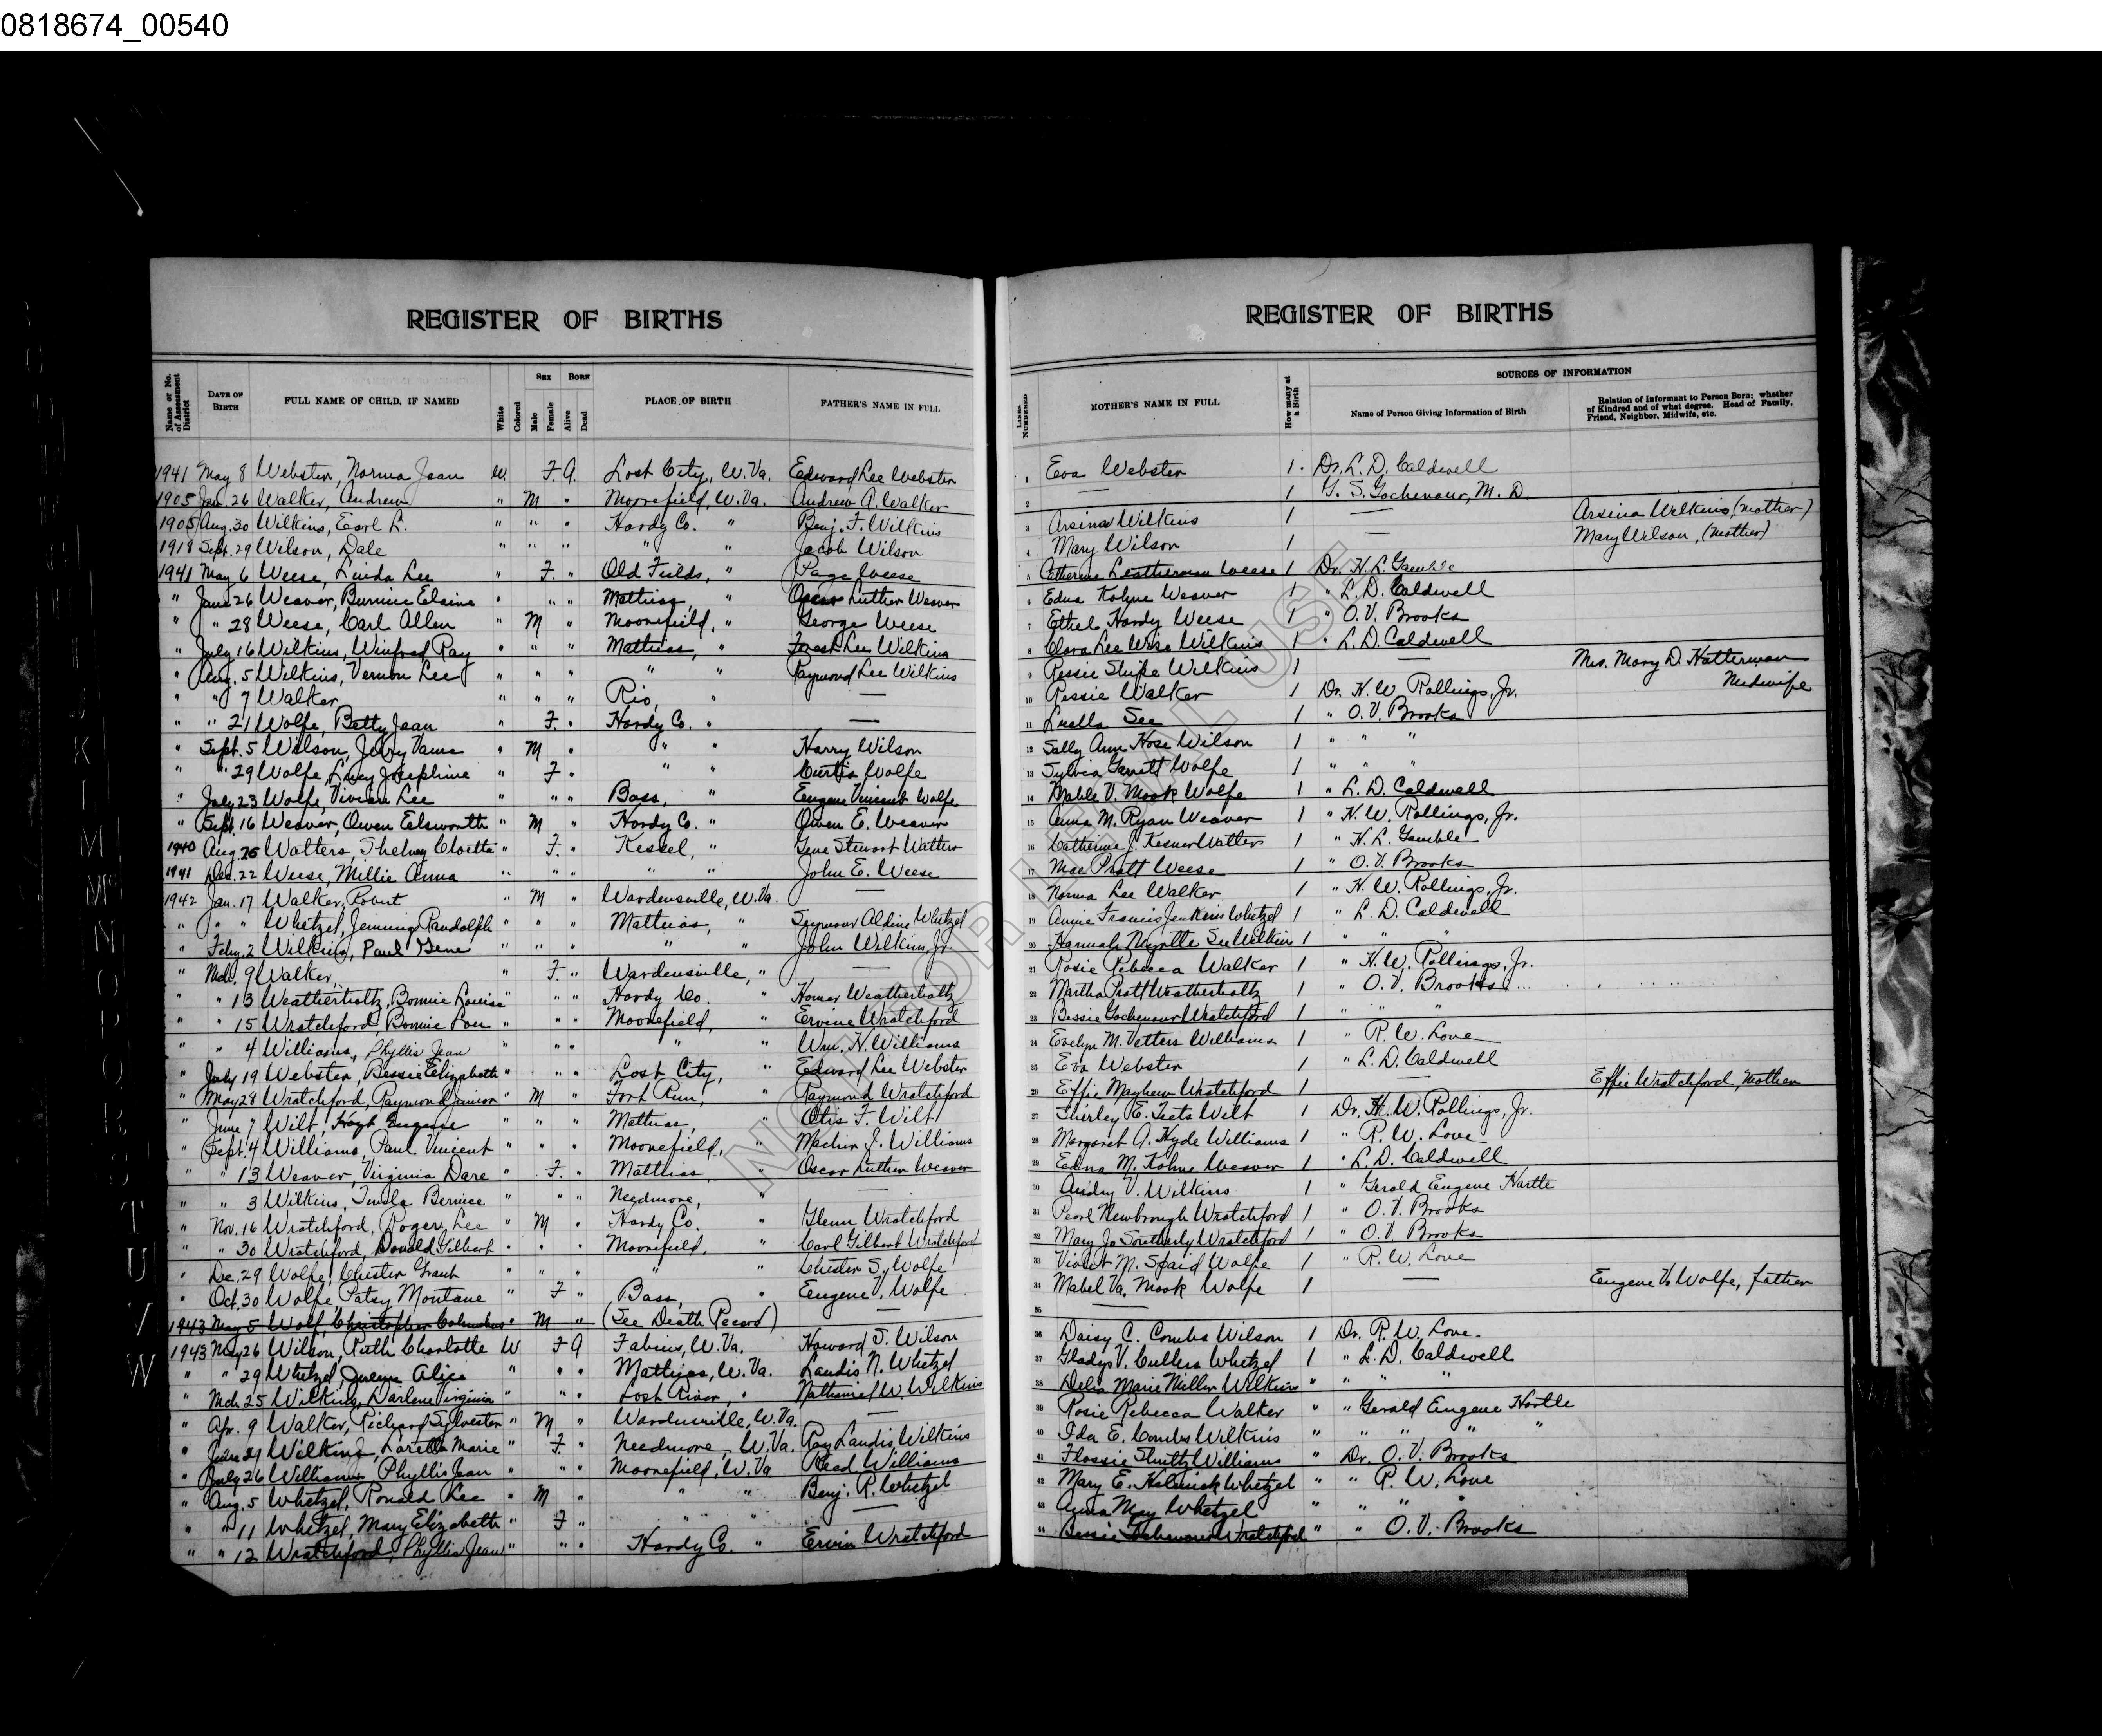 0818674_00540
REGISTER OF BIRTHS
Name or No. of Assessment District
DATE OF BIRTH
FULL NAME OF CHILD, IF NAMED
White
Colored
SEX
Male
Female
BORN
Alive
Dead
PLACE OF BIRTH
FATHER'S NAME IN FULL
1941 May 8 Webster, Norma Jean W. F. A. Lost City, W.Va. Edward Lee Webster
1905 Jan. 26 Walker, Andrew " M " Moorefield, W.Va. Andrew A. Walker
1905 Aug. 30 Wilkins, Earl L. " " " Hardy Co. " Benj. F. Wilkins
1918 Sept. 29 Wilson, Dale " " " " " Jacob Wilson
1941 May 6 Weese, Linda Lee " F. " Old Fields, " Page Weese
" June 26 Weaver, Bernice Elaine " " " Mathias, " Oscar Luther Weaver
" " 28 Weese, Carl Allen " M " Moorefield, " George Weese
" July 16 Wilkins, Winfred Ray " " " Mathias, " Forest Lee Wilkins
" Aug. 5 Wilkins, Vernon Lee " " " " " Raymond Lee Wilkins
" " 7 Walker " " " Rio, " —
" " 21 Wolfe, Betty Jean " F. " Hardy Co. " —
" Sept. 5 Wilson, Jerry Vance " M " " " Harry Wilson
" " 29 Wolfe, Lucy Josephine " F " " " Curtis Wolfe
" July 23 Wolfe, Vivian Lee " " " Bass, " Eugene Vincent Wolfe
" Sept. 16 Weaver, Owen Elsworth " M " Hardy Co. " Owen E. Weaver
1940 Aug. 26 Watters, Cloetta " F. " Kessel, " Gene Stewart Watters
1941 Dec. 22 Weese, Millie Anna " " " " " John E. Weese
1942 Jan. 17 Walker, Robert " M " Wardensville, W.Va. —
" " " Whetzel, Jennings Randolph " " " Mathias, " Seymour Aldine Whetzel
" Feby. 2 Wilkins, Paul Gene " " " " " John Wilkins, Jr.
" Mch. 9 Walker, " F. " Wardensville, " —
" " 13 Weatherholtz, Bonnie Louise " " " Hardy Co. " Homer Weatherholtz
" " 15 Wratchford, Bonnie Lou " " " Moorefield, " Ervine Wratchford
" " 4 Williams, Phyllis Jean " " " " " Wm. H. Williams
" July 19 Webster, Bessie Elizabeth " " " Lost City, " Edward Lee Webster
" May 28 Wratchford, Raymond Junior " M " Fort Run, " Raymond Wratchford
" June 7 Wilt, Hoyt Eugene " " " Mathias, " Otis F. Wilt
" Sept. 4 Williams, Paul Vincent " " " Moorefield, " Machir J. Williams
" " 13 Weaver, Virginia Dare " F. " Mathias, " Oscar Luther Weaver
" " 3 Wilkins, Bernice " " " Needmore, " —
" Nov. 16 Wratchford, Roger Lee " M " Hardy Co. " Glenn Wratchford
" " 30 Wratchford, Donald Gilbert " " " Moorefield, " Carl Gilbert Wratchford
" Dec. 29 Wolfe, Chester Grant " " " " " Chester S. Wolfe
" Oct. 30 Wolfe, Patsy Montane " F " Bass, " Eugene V. Wolfe
1943 May 5 Wolf, Christopher Columbus " M " (See Death Record) —
1943 May 26 Wilson, Ruth Charlotte W F A Fabius, W.Va. Howard S. Wilson
" " 29 Whetzel, Alice " " " Mathias, W.Va. Landis N. Whetzel
" Mch 25 Wilkins, Darlene Virginia " " " Lost River, " Nathaniel W. Wilkins
" Apr. 9 Walker, Richard Sylvester " M " Wardensville, W.Va. —
" June 21 Wilkins, Loretta Marie " F. " Needmore, W.Va. Ray Landis Wilkins
" July 26 Williams, Phyllis Jean " " " Moorefield, W.Va Reed Williams
" Aug. 5 Whetzel, Ronald Lee " M " " " Benj. R. Whetzel
" " 11 Whetzel, Mary Elizabeth " F " " " —
" " 12 Wratchford, Phyllis Jean " " " Hardy Co. " Ervin Wratchford
REGISTER OF BIRTHS
LINES NUMBERED
MOTHER'S NAME IN FULL
How many at a Birth
SOURCES OF INFORMATION
Name of Person Giving Information of Birth
Relation of Informant to Person Born; whether of Kindred and of what degree. Head of Family, Friend, Neighbor, Midwife, etc.
1 Eva Webster 1. Dr. L. D. Caldwell
2 — 1 G. S. Gochenour, M. D.
3 Arsina Wilkins 1 — Arsina Wilkins, (mother)
4 Mary Wilson 1 — Mary Wilson, (mother)
5 Catherine Leatherman Weese 1 Dr. H. L. Gamble
6 Edna Kohne Weaver 1 " L. D. Caldwell
7 Ethel Hardy Weese 1 " O. V. Brooks
8 Clara Lee Wise Wilkins 1 " L. D. Caldwell
9 Ressie Shipe Wilkins 1 — Mrs. Mary D. Halterman
Midwife
10 Ressie Walker 1 Dr. H. W. Rollings, Jr.
11 Luella See 1 " O. V. Brooks
12 Sally Ann Hose Wilson 1 " " "
13 Sylvia Garrett Wolfe 1 " " "
14 Mable V. Mook Wolfe 1 " L. D. Caldwell
15 Anna M. Ryan Weaver 1 " H. W. Rollings, Jr.
16 Catherine J. Kesner Watters 1 " H. L. Gamble
17 Mae Pratt Weese 1 " O. V. Brooks
18 Norma Lee Walker 1 " H. W. Rollings, Jr.
19 Annie Francis Jenkins Whetzel 1 " L. D. Caldwell
20 Hannah Myrtle See Wilkins 1 " " "
21 Rosie Rebecca Walker 1 " H. W. Rollings, Jr.
22 Martha Pratt Weatherholtz 1 " O. V. Brooks
23 Bessie Gochenour Wratchford 1 " " "
24 Evelyn M. Vetters Williams 1 " R. W. Love
25 Eva Webster 1 " L. D. Caldwell
26 Effie Mayhew Wratchford 1 — Effie Wratchford, Mother
27 Shirley E. Teets Wilt 1 Dr. H. W. Rollings, Jr.
28 Margaret A. Hyde Williams 1 " R. W. Love
29 Edna M. Kohne Weaver 1 " L. D. Caldwell
30 Audry V. Wilkins 1 " Gerald Eugene Hartle
31 Pearl Newbrough Wratchford 1 " O. V. Brooks
32 Mary Jo Southerly Wratchford 1 " O. V. Brooks
33 Violet M. Spaid Wolfe 1 " R. W. Love
34 Mabel Va. Mook Wolfe 1 — Eugene V. Wolfe, father
35 —
36 Daisy C. Combs Wilson 1 Dr. R. W. Love.
37 Gladys V. Cullers Whetzel 1 " L. D. Caldwell
38 Delia Marie Miller Wilkins " " " "
39 Rosie Rebecca Walker " " Gerald Eugene Hartle
40 Ida E. Combs Wilkins " " " "
41 Flossie Shultz Williams " Dr. O. V. Brooks
42 Mary E. Helmick Whetzel " " R. W. Love
43 Anna May Whetzel " " " "
44 Bessie Gochenour Wratchford " " O. V. Brooks
NOT FOR LEGAL USE